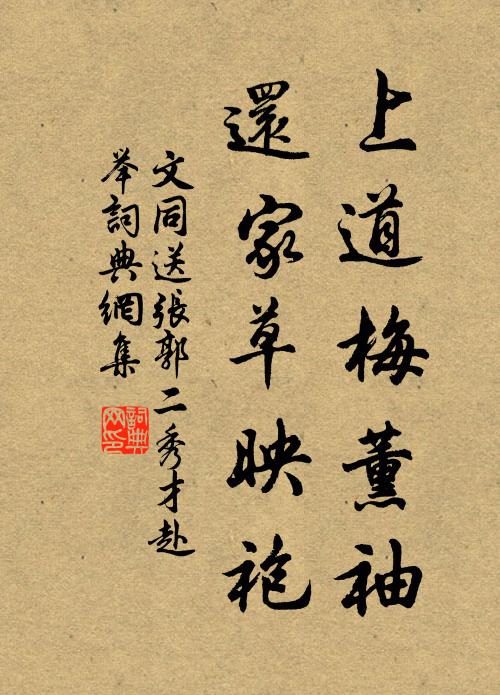 上道梅薰袖
還家草映袍
文同送張郭二秀才赴
举詞典網集
詞典
网印